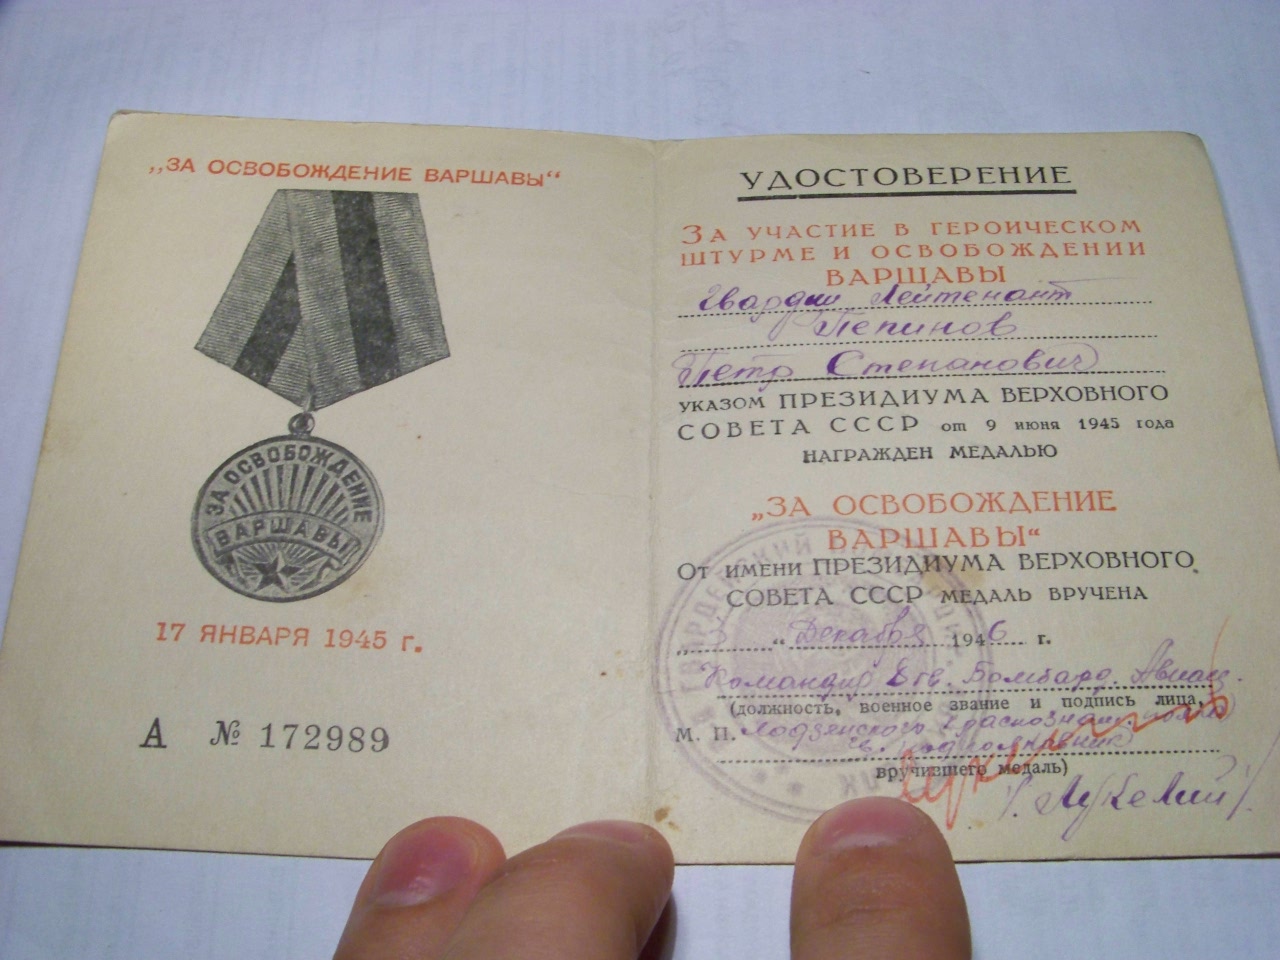 „ЗА ОСВОБОЖДЕНИЕ ВАРШАВЫ“
ЗА ОСВОБОЖДЕНИЕ
ВАРШАВЫ
17 ЯНВАРЯ 1945 г.
А № 172989
УДОСТОВЕРЕНИЕ
ЗА УЧАСТИЕ В ГЕРОИЧЕСКОМ
ШТУРМЕ И ОСВОБОЖДЕНИИ
ВАРШАВЫ
Гвардии Лейтенант
Пепинов
Петр Степанович
УКАЗОМ ПРЕЗИДИУМА ВЕРХОВНОГО
СОВЕТА СССР от 9 июня 1945 года
НАГРАЖДЕН МЕДАЛЬЮ
„ЗА ОСВОБОЖДЕНИЕ
ВАРШАВЫ“
ОТ ИМЕНИ ПРЕЗИДИУМА ВЕРХОВНОГО
СОВЕТА СССР МЕДАЛЬ ВРУЧЕНА
„ “ Декабря 1946 г.
Командир 8 гв. Бомбард. Авиац.
(должность, военное звание и подпись лица,
М. П.
гв. подполковник
вручившего медаль)
/Мукелий/